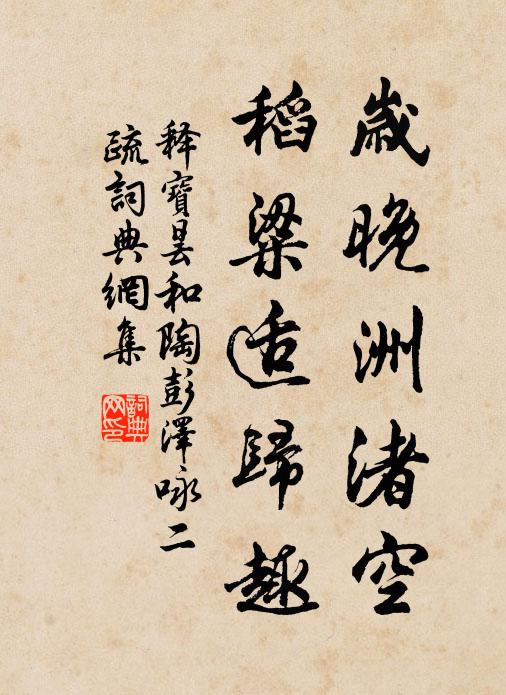 歲晚洲渚空
稻粱适歸趣
释寶曇和陶彭澤咏二
疏詞典網集
詞典网印